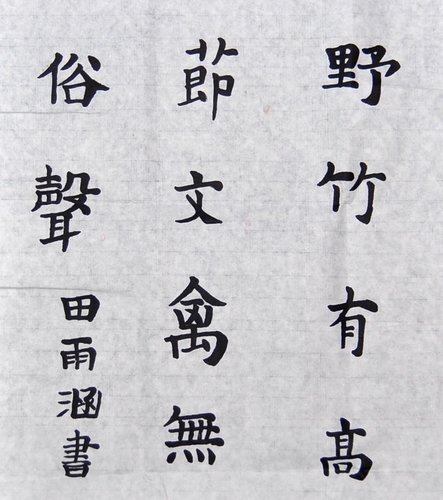 野竹有高
節文禽無
俗聲
田雨涵書